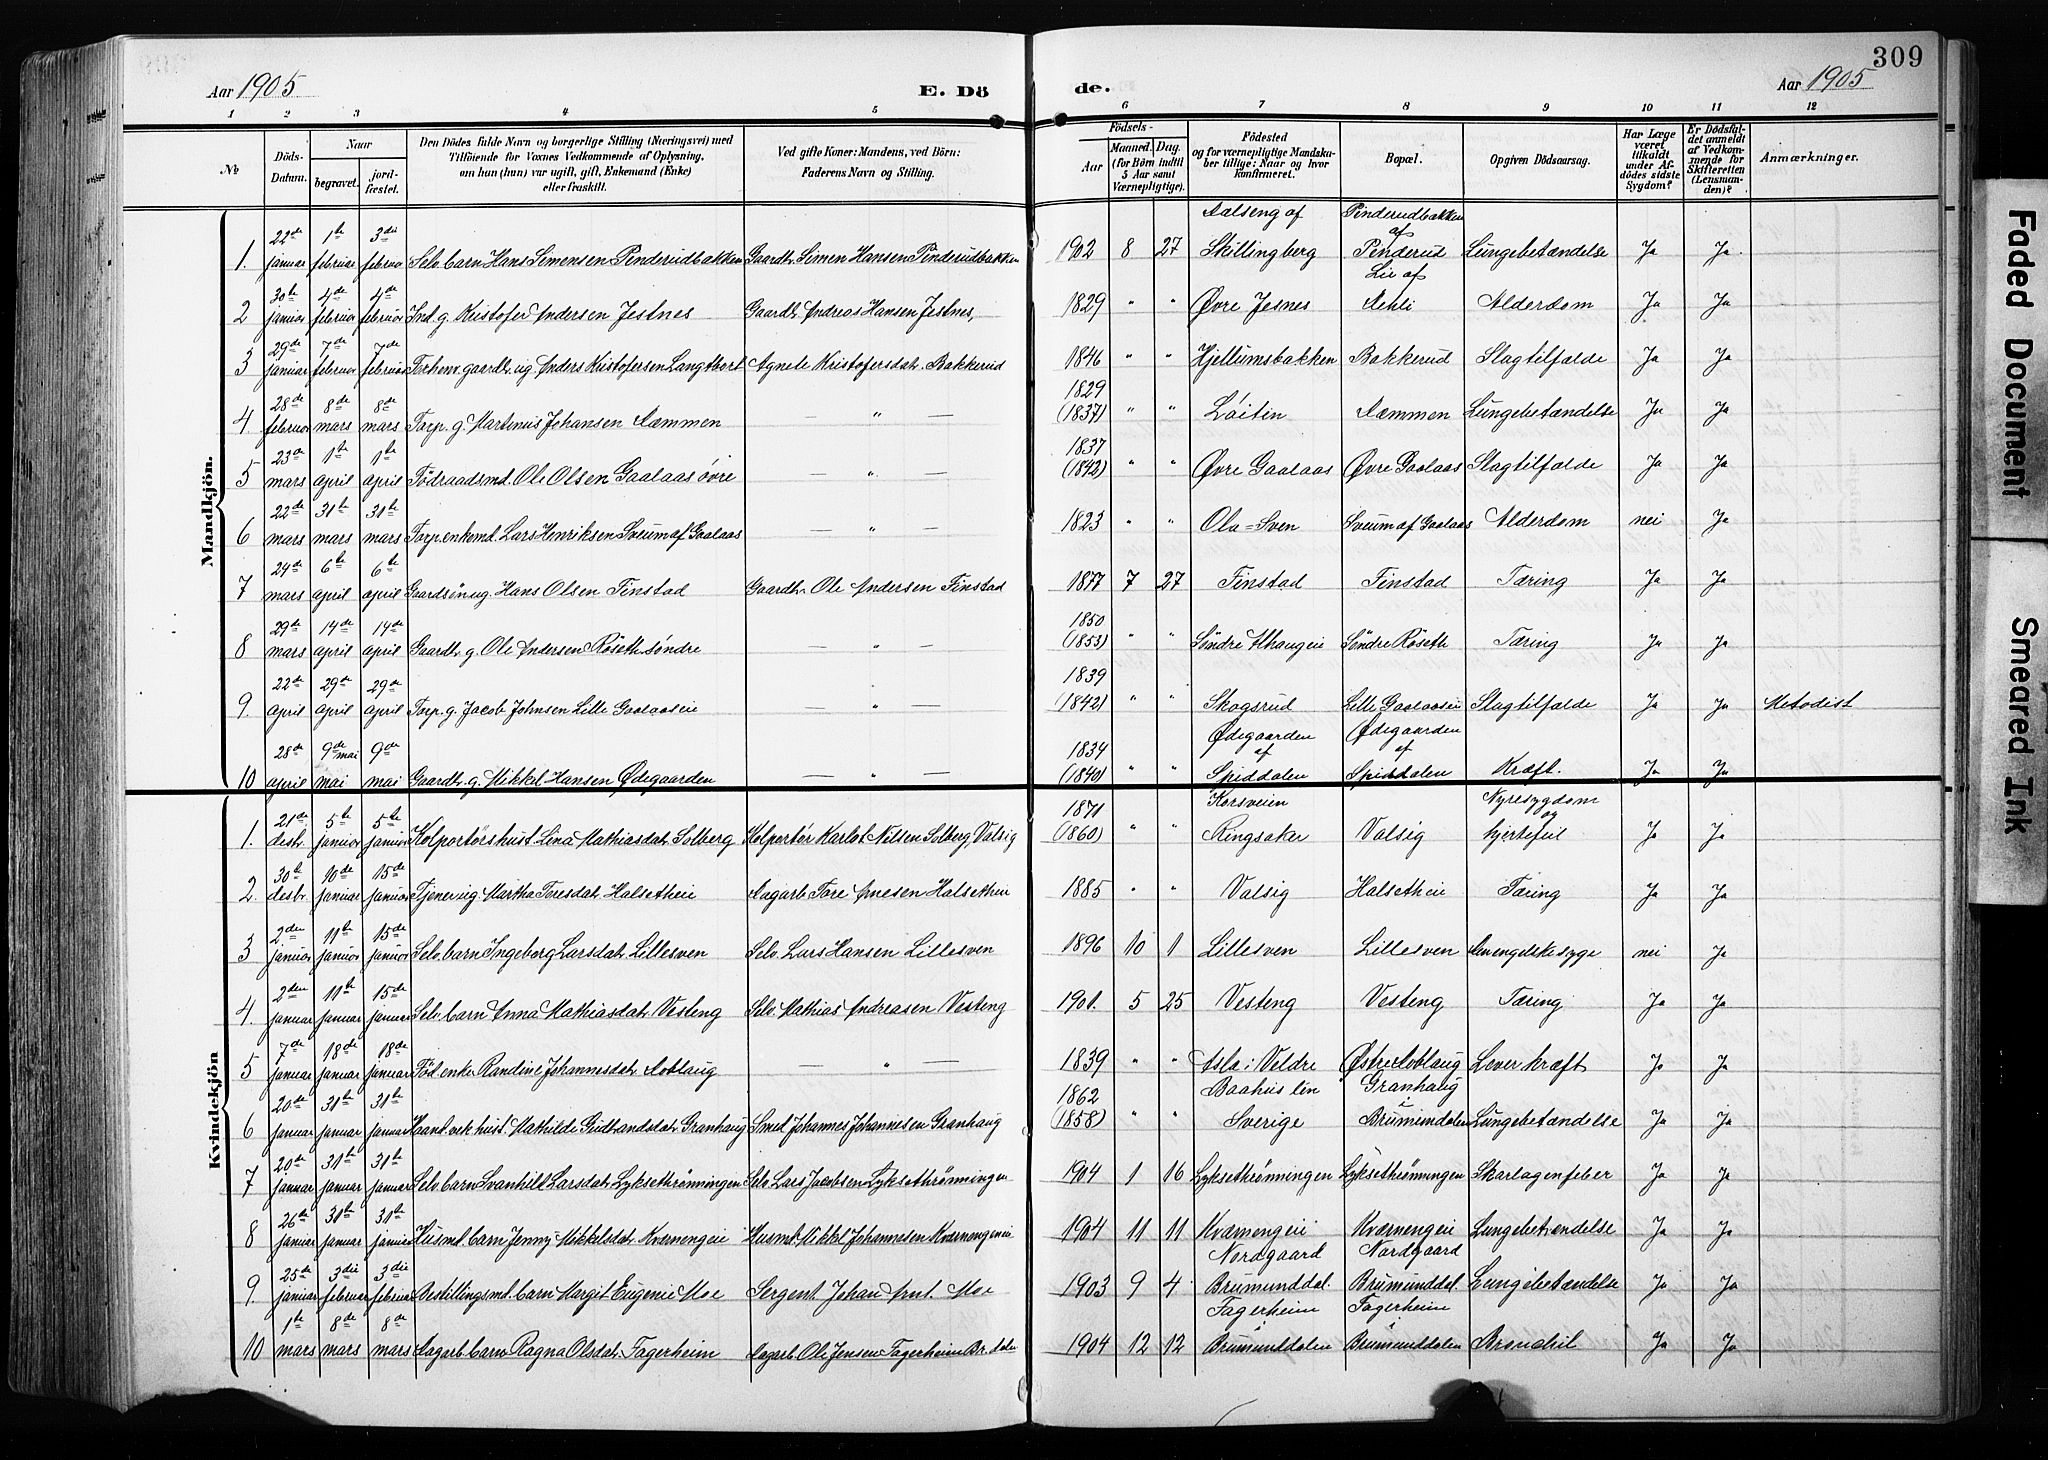 309
Aar 1905
E. Dö
de.
Aar 1905
1 2 3 4 5 6 7 8 9 10 11 12
No
Döds-Datum.
Naar
begravet.
jordfæstet.
Den Dödes fulde Navn og borgerlige Stilling (Næringsvei) med Tilföiende for Voxnes Vedkommende af Oplysning, om hun (hun) var ugift, gift, Enkemand (Enke) eller fraskilt.
Ved gifte Koner: Mandens, ved Börn: Faderens Navn og Stilling.
Födsels-
Aar
Maaned. Dag.
(for Börn indtil 5 Aar samt Værnepligtige).
Födested
og for værnepligtige Mandskaber tillige: Naar og hvor konfirmeret.
Bopæl.
Opgiven Dödsaarsag.
Har Læge været tilkaldt under Afdödes sidste Sygdom?
Er Dödsfaldet anmeldt af Vedkommende for Skifteretten (Lensmanden)?
Anmærkninger.
Mandkjön.
1. 22de januar 1te februar 3die februar Selv. barn Hans Simensen Pinderudbakken Gaardb. Simen Hansen Pinderudbakken 1902 8 27 Aalseng af Skillingberg Pinderudbakken af Pinderud Lungebetændelse Ja Ja.
2 30te januar 4de februar 4de februar Ind. g. Kristofer Andersen Jestnes Gaardb. Andreas Hansen Jestnes, 1829 " " Øvre Jesnes Lie af Aehli Alderdom Ja Ja
3 29de januar 7de februar 7de februar Forhenv. gaardb. ug. Anders Kristofersen Langtbort Agnete Kristofersdat. Bakkerud 1846 " " Hjellumsbakken Bakkerud Slagtilfælde Ja Ja
4 28de februar 8de mars 8de mars Torp. g. Martinus Johansen Aammen — " — 1829 (1837) " " Løiten Aammen Lungebetændelse Ja Ja
5 23de mars 1te april 1te april Födraadsmd. Ole Olsen Gaalaas övre — " — 1837 (1842) " " Øvre Gaalaas Øvre Gaalaas Slagtilfælde Ja Ja
6 22de mars 31te mars 31te mars Torp. enkemd. Lars Henriksen Sveum af Gaalaas — " — 1823 " " Ola=Sven Sveum af Gaalaas Alderdom nei Ja
7 24de mars 6te april 6te april Gaardsön ug. Hans Olsen Finstad Gaardb. Ole Andersen Finstad 1877 7 27 Finstad Finstad Tæring Ja Ja
8 29de mars 14de april 14de april Gaardb. g. Ole Andersen Röseth söndre — " — 1850 (1853) " " Söndre Alhaugeie Söndre Röseth Tæring Ja Ja
9. 22de april 29de april 29de april Torp. g. Jacob Johnsen Lille Gaalaaseie — " — 1839 (1842) " " Skogsrud Lille Gaalaaseie Slagtilfælde Ja Ja Metodist
10 28de april 9de mai mai 9de mai Gaardb. g. Mikkel Hansen Ødegaarden — " — 1834 (1840) " " Ødegaarden af Spiddalen Ødegaarden af Spiddalen Kræft. Ja Ja
Kvindekjön
1. 21de desbr. 5te januar 5te januar Kolportörshust. Lina Mathiasdat. Solberg Kolportör Karlot Nilsen Solberg, Valsig 1871 (1860) " " Korsveien Ringsaker Valsig Nyresygdom og hjertefeil Ja Ja
2. 30te desbr. 10de januar 15de januar Tjener ug. Martha Toresdat. Halsetheie Dagarb. Tore Arnesen Halsetheie 1885 " " Valsig Halsetheie Tæring Ja Ja
3 2den januar 11te januar 15de januar Selv. barn Ingeborg Larsdat. Lillesven Selv. Lars Hansen Lillesven 1896 10 1 Lillesven Lillesven den engelske syge nei Ja
4. 2den januar 11te januar 15de januar Selv. barn Anna Mathiasdat. Vesteng Selv. Mathias Andreasen Vesteng 1901. 5 25 Vesteng Vesteng Tæring Ja Ja
5 7de januar 18de januar 18de januar Föd. enke Randine Johannesdat. Aoblaug — " — 1839 " " Asla i Veldre Østre Aoblaug Lever kræft Ja Ja
6 20de januar 31te januar 31te januar Haandverk. hust. Mathilde Gudbrandsdat. Granhaug Smed Johannes Johannesen Granhaug 1862 (1858) " " Baahus len Sverige Granhaug i Brumunddalen Lungebetændelse Ja Ja
7 20de januar 31te januar 31te januar Selv. barn Svanhild Larsdat. Lyksethrønningen Selv. Lars Jacobsen Lyksethrønningen 1904 1 16 Lyksethrønningen Lyksethrønningen Skarlagenfeber Ja Ja
8 26de januar 31te januar 31te januar Husmd. barn Jenny Mikkelsdat. Kværnengeie Husmd. Mikkel Johannesen Kværnengeie 1904 11 11 Kværnengeie Kværnengeie Lungebetændelse Ja Ja
9. 25de januar 3die februar 3die februar Bestillingsmd. barn Margit Eugenie Moe Sergent Johan Arnt. Moe 1903 9 4 Nordgaard Brumunddal. Nordgaard Brumunddal. Lungebetændelse Ja Ja
10 1te mars 8de mars 8de mars Dagarb. barn Ragna Olsdat. Fagerheim Dagarb. Ole Jensen Fagerheim Br.dalen 1904 12 12 Fagerheim i Brumunddalen Fagerheim i Brumunddalen Bronchit Ja Ja
Faded Document
Smeared Ink